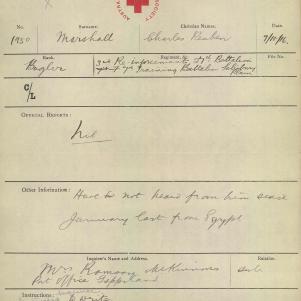 AUSTRA
SOCIETY
No. Surname. Christian Names. Date.
1950 Marshall Charles Reuben 7/10/16
Rank. Regiment. File No.
Bugler 3rd Re-inforcements 47th Battalion
Training Battalion Salisbury
Plain
C/L
OFFICIAL REPORTS:
Nil
Other Information: Have to not heard from him since
January last from Egypt
Inquirer's Name and Address. Relation.
Mrs Ramsay McKinnon
Post Office Gippsland
Instructions:
Write